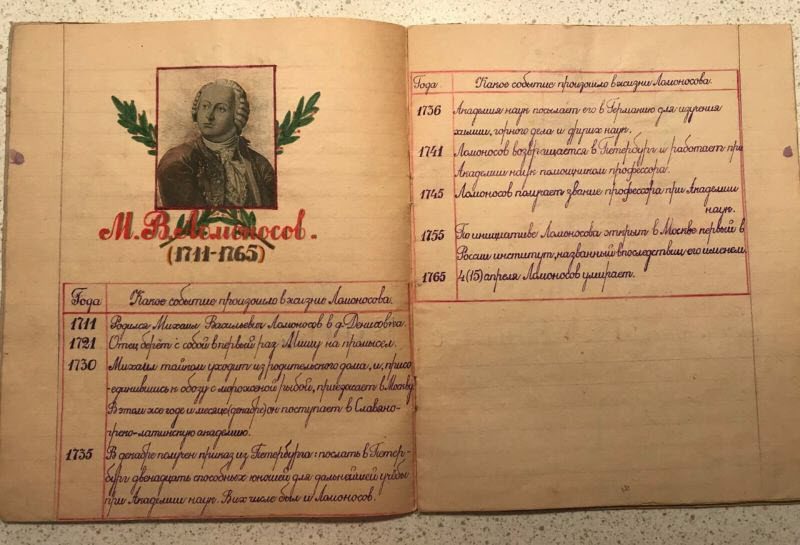 М.В.Ломоносов.
(1711-1765)
Года Какое событие произошло в жизни Ломоносова.
1711 Родился Михаил Васильевич Ломоносов в д. Денисовка.
1721 Отец берёт с собой в первый раз Мишу на промысел.
1730 Михаил тайком уходит из родительского дома, и, присо-
-единившись к обозу с мороженой рыбой, приезжает в Москву
В этом же годе и месяце (декабре) он поступает в Славяно-
-греко-латинскую академию.
1735 В декабре получен приказ из Петербурга: послать в Петер-
-бург двенадцать способных юношей для дальнейшей учёбы
при Академии наук. В их числе был и Ломоносов.
Года Какое событие произошло в жизни Ломоносова.
1736 Академия наук посылает его в Германию для изучения
химии, горного дела и других наук.
1741 Ломоносов возвращается в Петербург и работает при
Академии наук помощником профессора.
1745 Ломоносов получает звание профессора при Академии
наук.
1755 По инициативе Ломоносова открыт в Москве первый в
России институт, названный впоследствии его именем.
1765 4(15) апреля Ломоносов умирает.